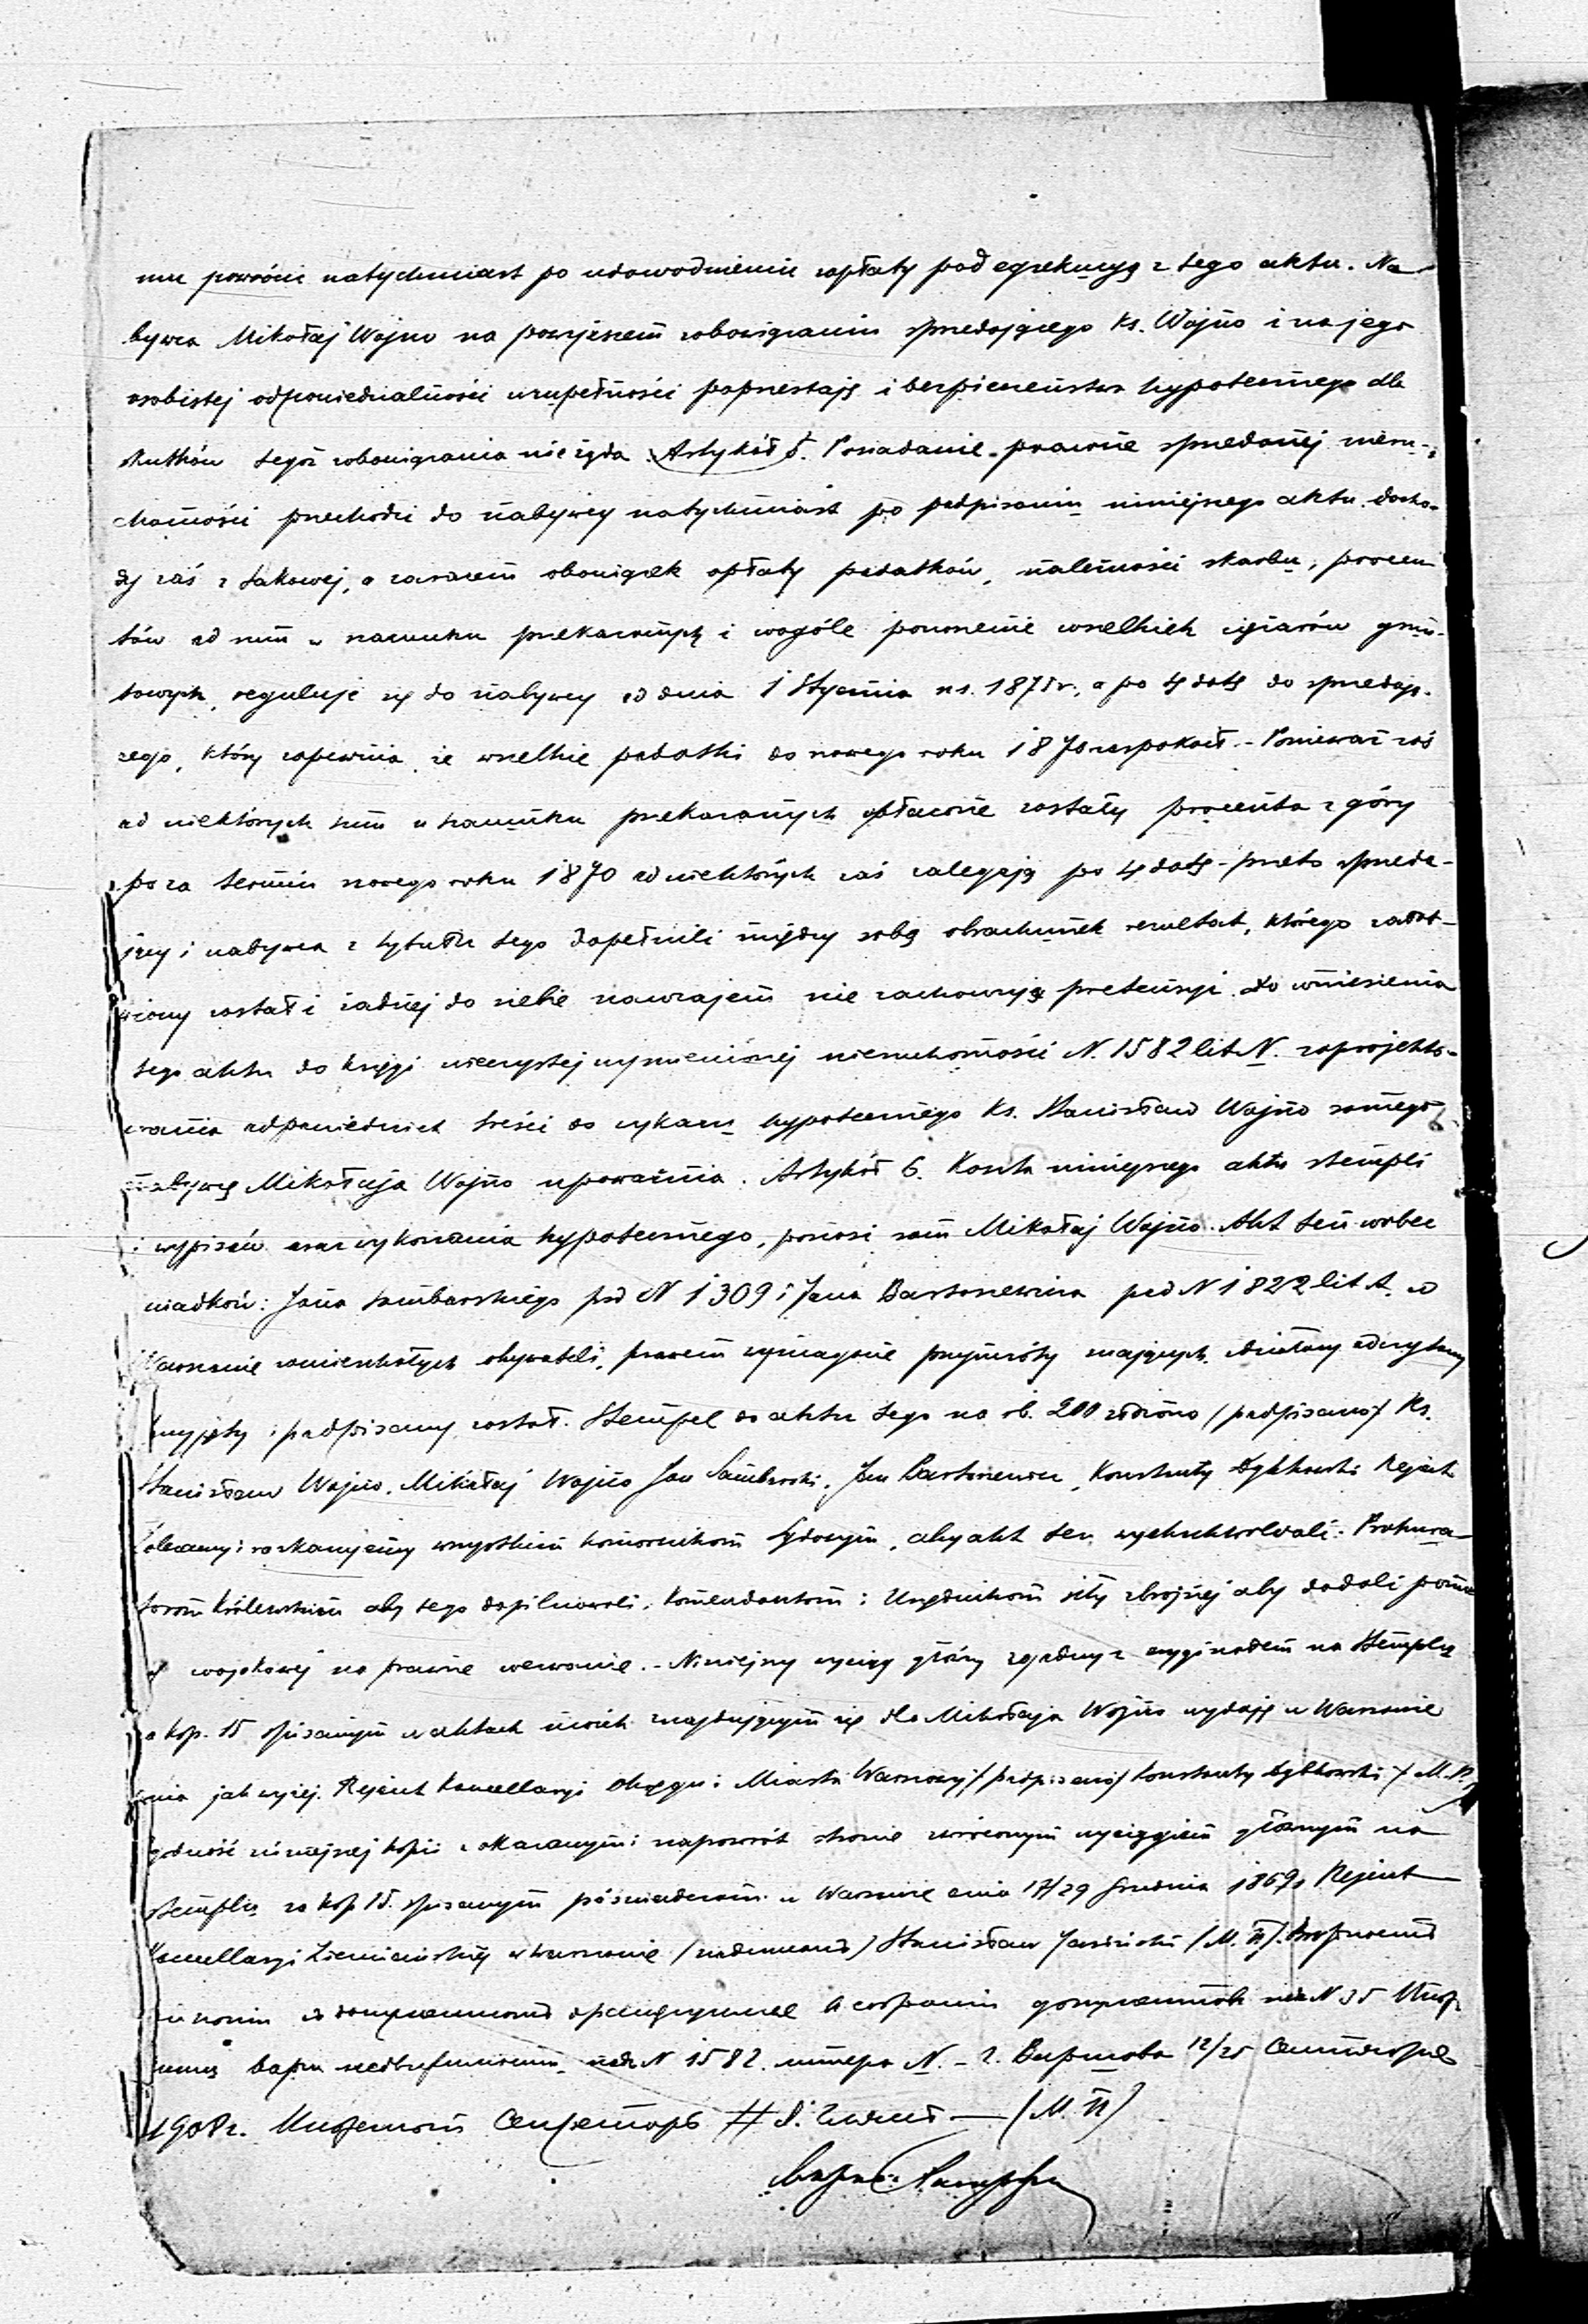 mu powróci natychmiast po udowodnieniu zapłaty pod egzekucyą z tego aktu. Na-
bywca Mikołaj Wojno na powyższem zobowiązaniu sprzedającego Ks. Wojno i na jego
osobistej odpowiedzialności w zupełności poprzestaję i bezpieczeństwa hypotecznego dla
skutków tegoż zobowiązania nie żąda. Artykół 5. Posiadanie prawne sprzedanej nieru-
chomości przechodzi do nabywcy natychmiast po podpisaniu niniejszego aktu. docho-
dy zaś z takowej, a zarazem obowiązek opłaty podatków, należności skarbu, procen
tów od sum w szacunku przekazanych i wogóle ponoszenie wszelkich ciężarów grun-
towych, reguluje się do nabywcy od dnia 1 Stycznia n.s. 1870 r., a po tę datę do sprzedają-
cego, który zapewnia, że wszelkie podatki do nowego roku 1870 zaspokoił. - Ponieważ zaś
od niektórych sum w szacunku przekazanych opłacone zostały procenta z góry
po za termin nowego roku 1870 od niektórych zaś zalegają po tę datę - przeto sprzeda-
jący i nabywca z tytułu tego dopełnili między sobą obrachunek rezultat, którego załat-
wiony został i żadnej do siebie nawzajem nie zachowują pretensyi. do wniesienia
tego aktu do księgi wieczystej wymienionej nieruchomości N. 1582 lit. N. zaprojekto-
wania odpowiednich treści do wykazu hypotecznego Ks. Stanisław Wojno samego
nabywcę Mikołaja Wojno upoważnia. Artykół 6. Koszta niniejszego aktu stempli
i wypisów oraz wykonania hypotecznego, ponosi sam Mikołaj Wojno. Akt ten wobec
świadków: Jana Samborskiego pod N 1309 i Jana Bartosiewicza pod N 1822 lit A. w
Warszawie zamieszkałych obywateli, prawem wymagane przymioty mających. zdziałany odczytany
przyjęty i podpisany został. Stempel do aktu tego na rb. 200 złożono /podpisano/ Ks.
Stanisław Wojno. Mikołaj Wojno Jan Samborski, Jan Bartosiewicz, Konstanty Rejent
Zalecamy i rozkazujemy wszystkim komornikom Sądowym, aby akt ten wyekzekwowali. Prokura-
torom Królewskim aby tego dopilnowali. Komendantom i Urzędnikom siły zbrojnej aby dodali pomo
cy wojskowej na prawne wezwanie. - Niniejszy wyciąg główny zgodny z oryginałem na Stemplu
za kop. 15 spisanym w aktach moich znajdującym się dla Mikołaja Wojno wydaję w Warszawie
dnia jak wyżej. Rejent Kancellaryi Okręgu i Miasta Warszawy /podpisano/ Konstanty /M.P./
Zgodność niniejszej kopii z okazanym i napowrót stronie zwróconym wyciągiem głównym na
stemplu za kop 15. spisanym poświadczam w Warszawie dnia 17/29 Grudnia 1869 r. Rejent
Kancellaryi Ziemiańskiej w Warszawie Stanisław Jasiński (М. П.).
N 35
N 1582 литера N. - г. Варшава 12/25 Сентября
1908 г. Секретарь (М. П)